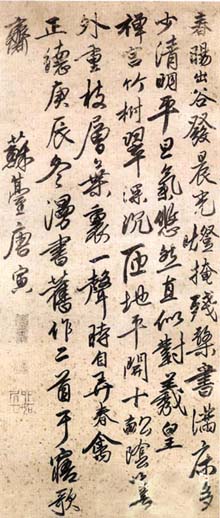 春暘出谷發晨光燈掩殘檠書滿床多
少清明平旦氣悠然直似對羲皇
禪宮竹樹翠深沉匝地平開十畝陰
外重枝層葉裏一聲時自弄春禽
正德庚辰冬漫書舊作二首于寤歌
齋 蘇臺唐寅